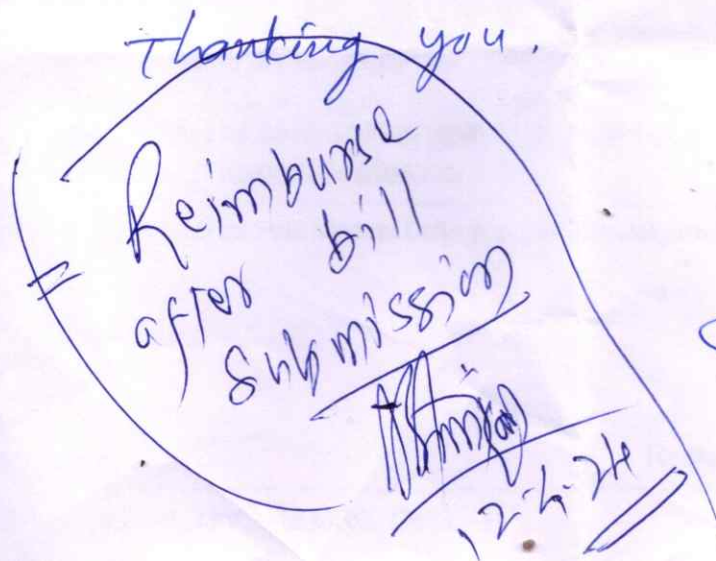 Thanking you.
Reimburse
after bill
submission
12-6-24